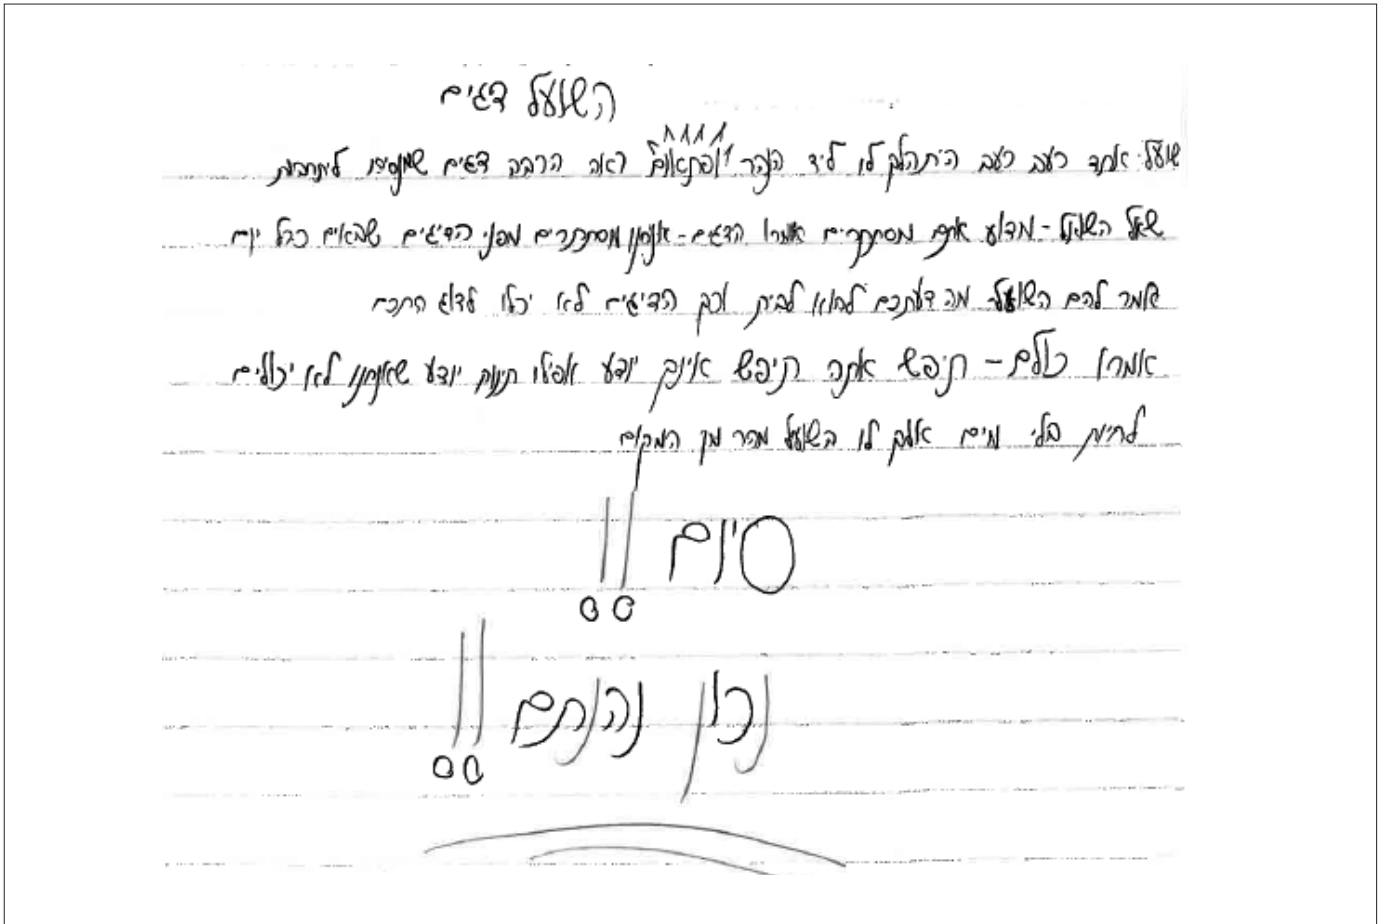 השועל דגים
שועל אחד רעב רעב היתהלך לו ליד הנהר ופתאום ראה הרבה דגים שמנסים
שאל השועל - מדוע אתם מסתתרים אמרו הדגים - אנחנו מסתתרים מפני הדייגים שבאים כהל יום
אמר להם השועל - מה דעתכם לבוא לבית וכך הדייגים לא יכלו לדוג התכם
אמרו כולם - תיפש אתה תיפש אינך יודע אפילו תינוק יודע שאנחנו לא יכולים
לחיות בלי מים אלך לו השועל מהר מן המקום
סיום !!
נכון נהנתם !!